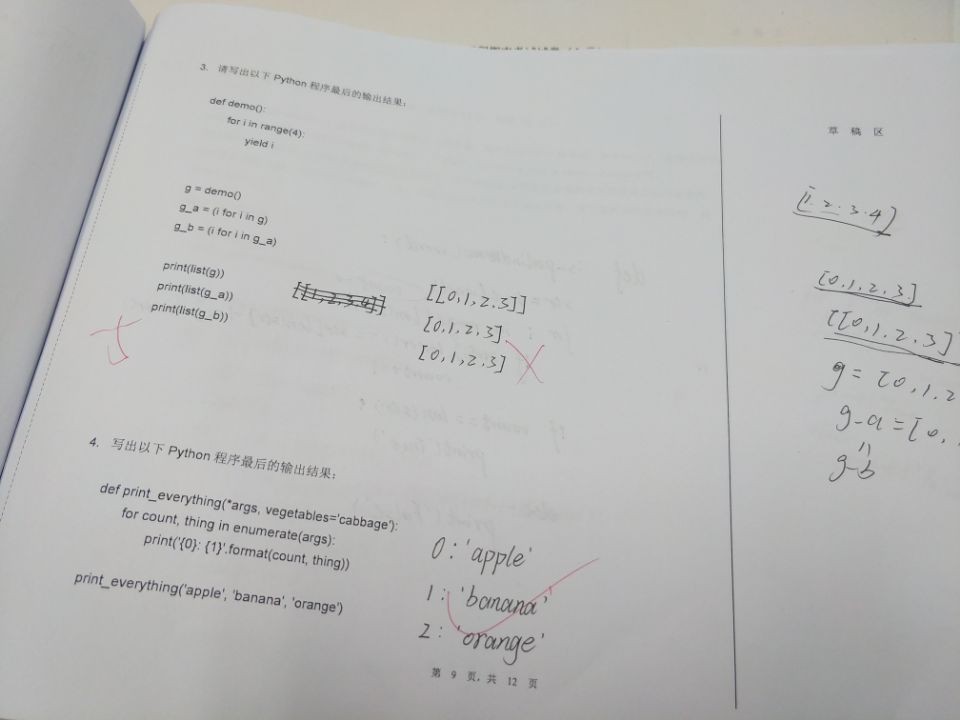 3. 请写出以下 Python 程序最后的输出结果：
def demo():
for i in range(4):
yield i
g = demo()
g_a = (i for i in g)
g_b = (i for i in g_a)
print(list(g))
print(list(g_a))
print(list(g_b))
[[0,1,2,3]]
[0,1,2,3]
[0,1,2,3]
4. 写出以下 Python 程序最后的输出结果：
def print_everything(*args, vegetables='cabbage'):
for count, thing in enumerate(args):
print('{0}: {1}'.format(count, thing))
print_everything('apple', 'banana', 'orange')
0:'apple'
1:'banana'
2:'orange'
第 9 页，共 12 页
草 稿 区
[1.2.3.4]
[0.1.2.3]
[[0,1.2.3]
g = [0.1.2
g-a = [0.
g-b